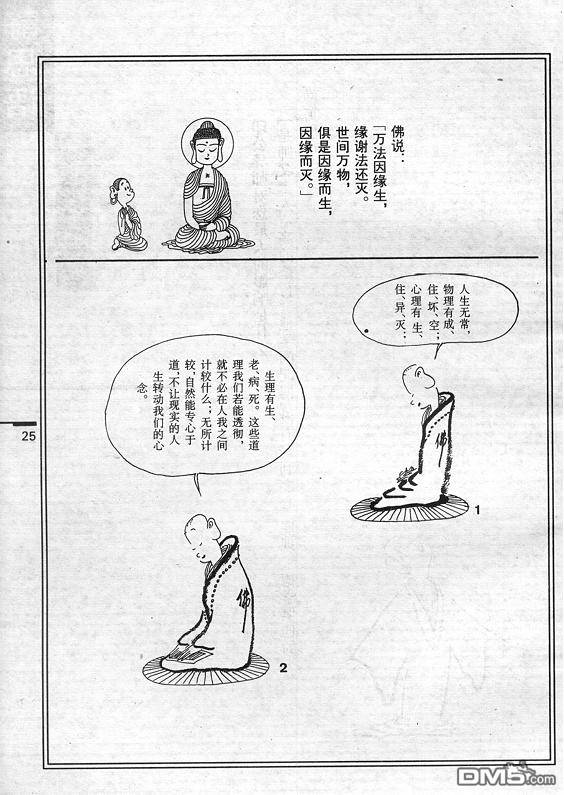 佛说：
「万法因缘生，
缘谢法还灭。
世间万物，
俱是因缘而生，
因缘而灭。」
人生无常，
物理有成、
住、坏、空；
心理有生、
住、异、灭；
1
生理有生、
老、病、死。这些道
理我们若能透彻，
就不必在人我之间
计较什么；无所计
较，自然能专心于
道，不让现实的人
生转动我们的心
念。
2
佛
佛
25
DM5.com